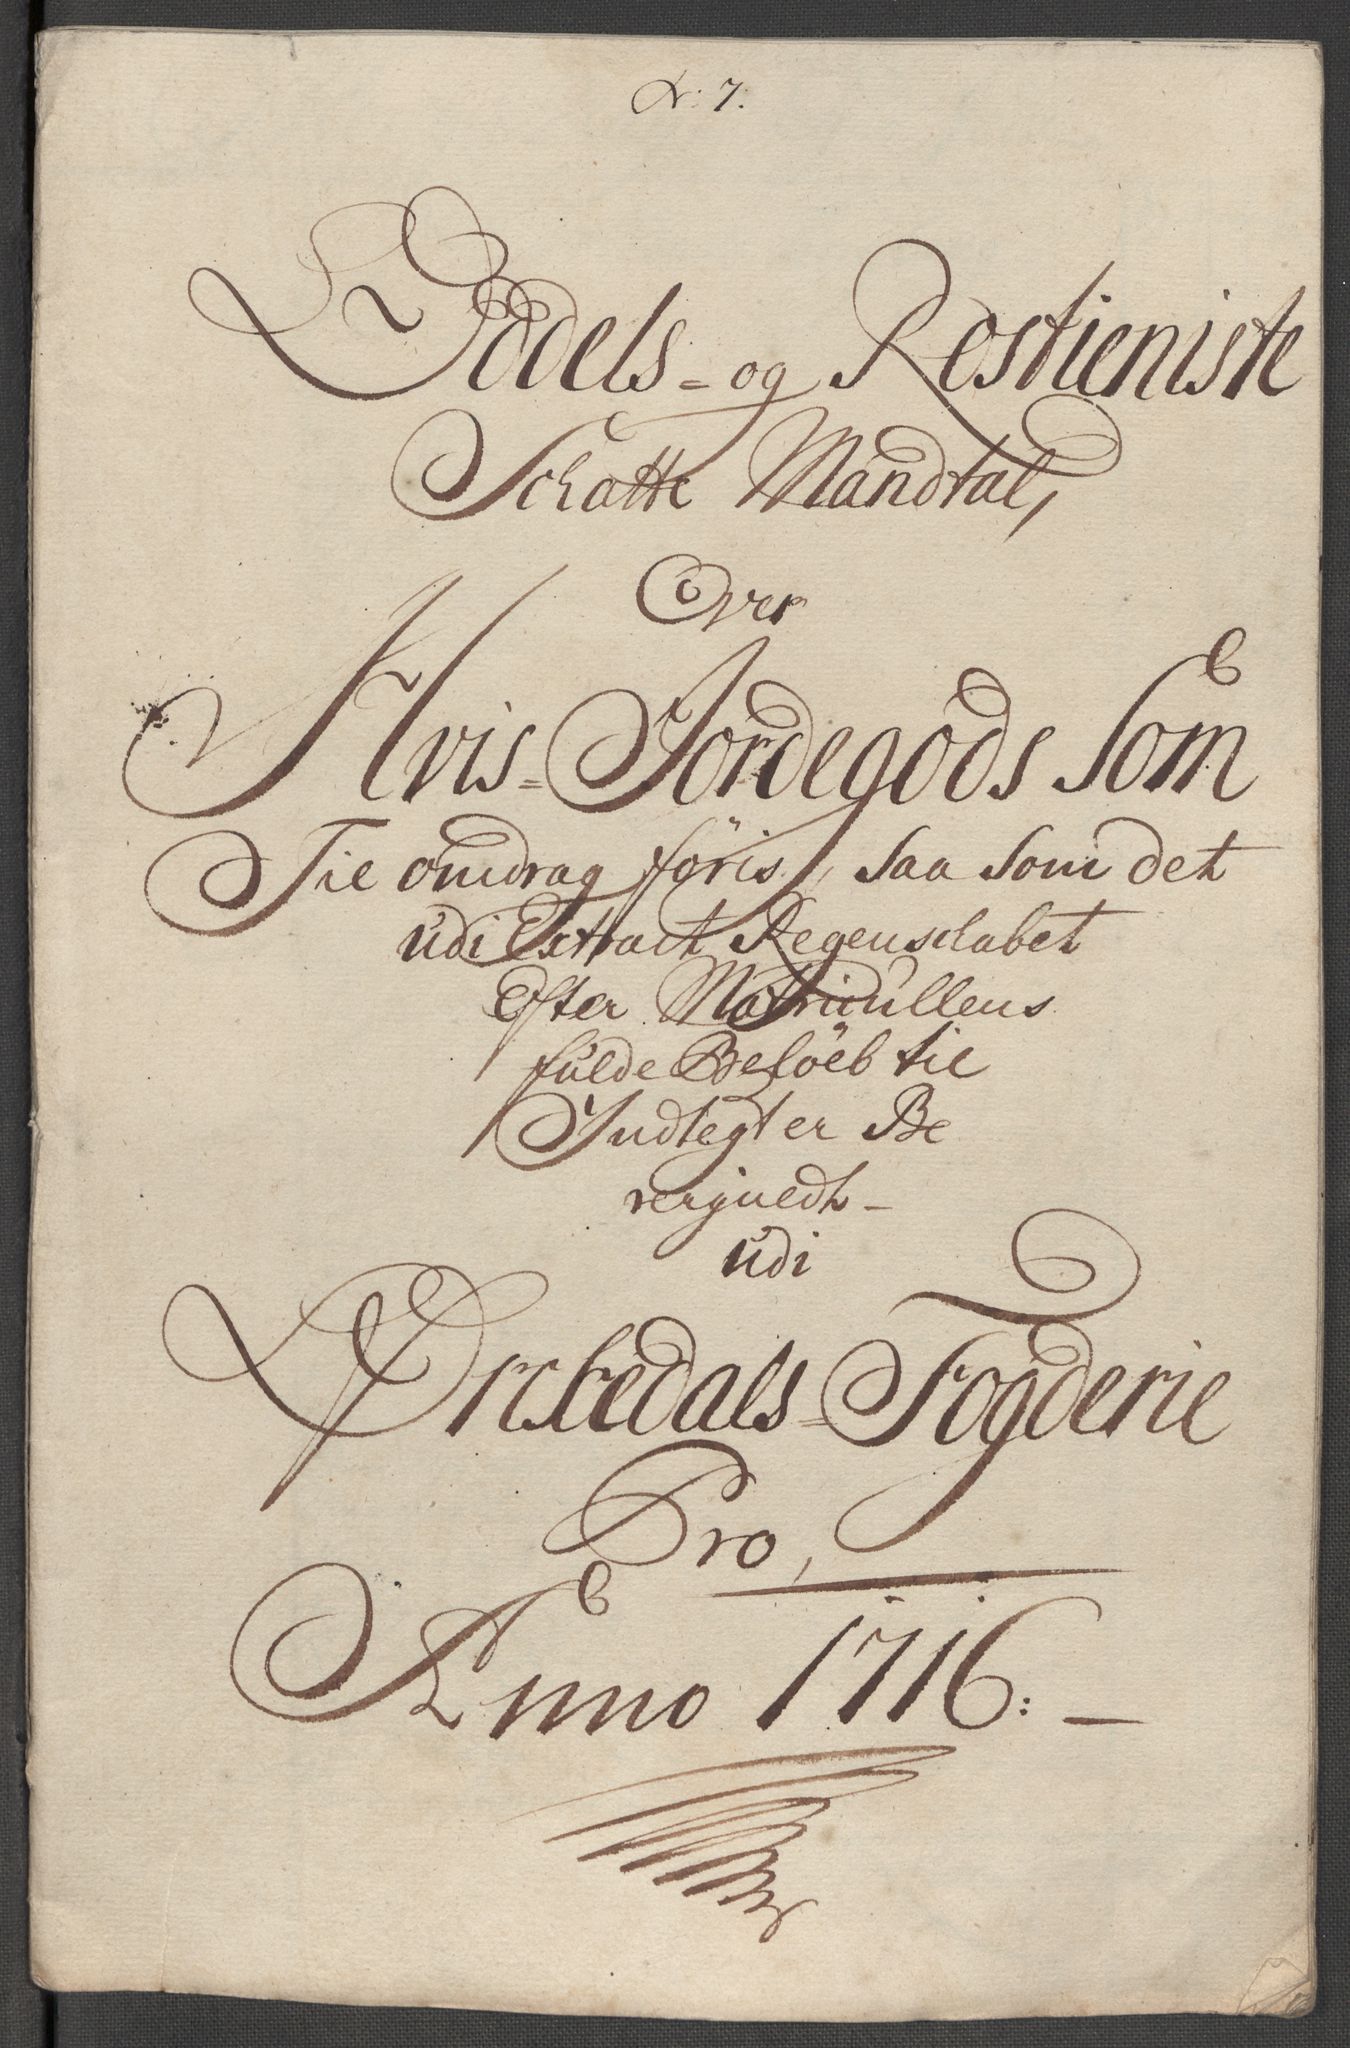 N: 7.
Odels- og Rostieniste
Schatte Mandtal,
Over
Hvis-Jordegods Som
Til omdrag föris, saa Som det
udi Extract Regenscabet
Efter Matricullens
fulde Belöeb til
Indtegt er Be
regnedt-
udi
Ørkedals-Fogderie
Pro,
Anno 1716:-